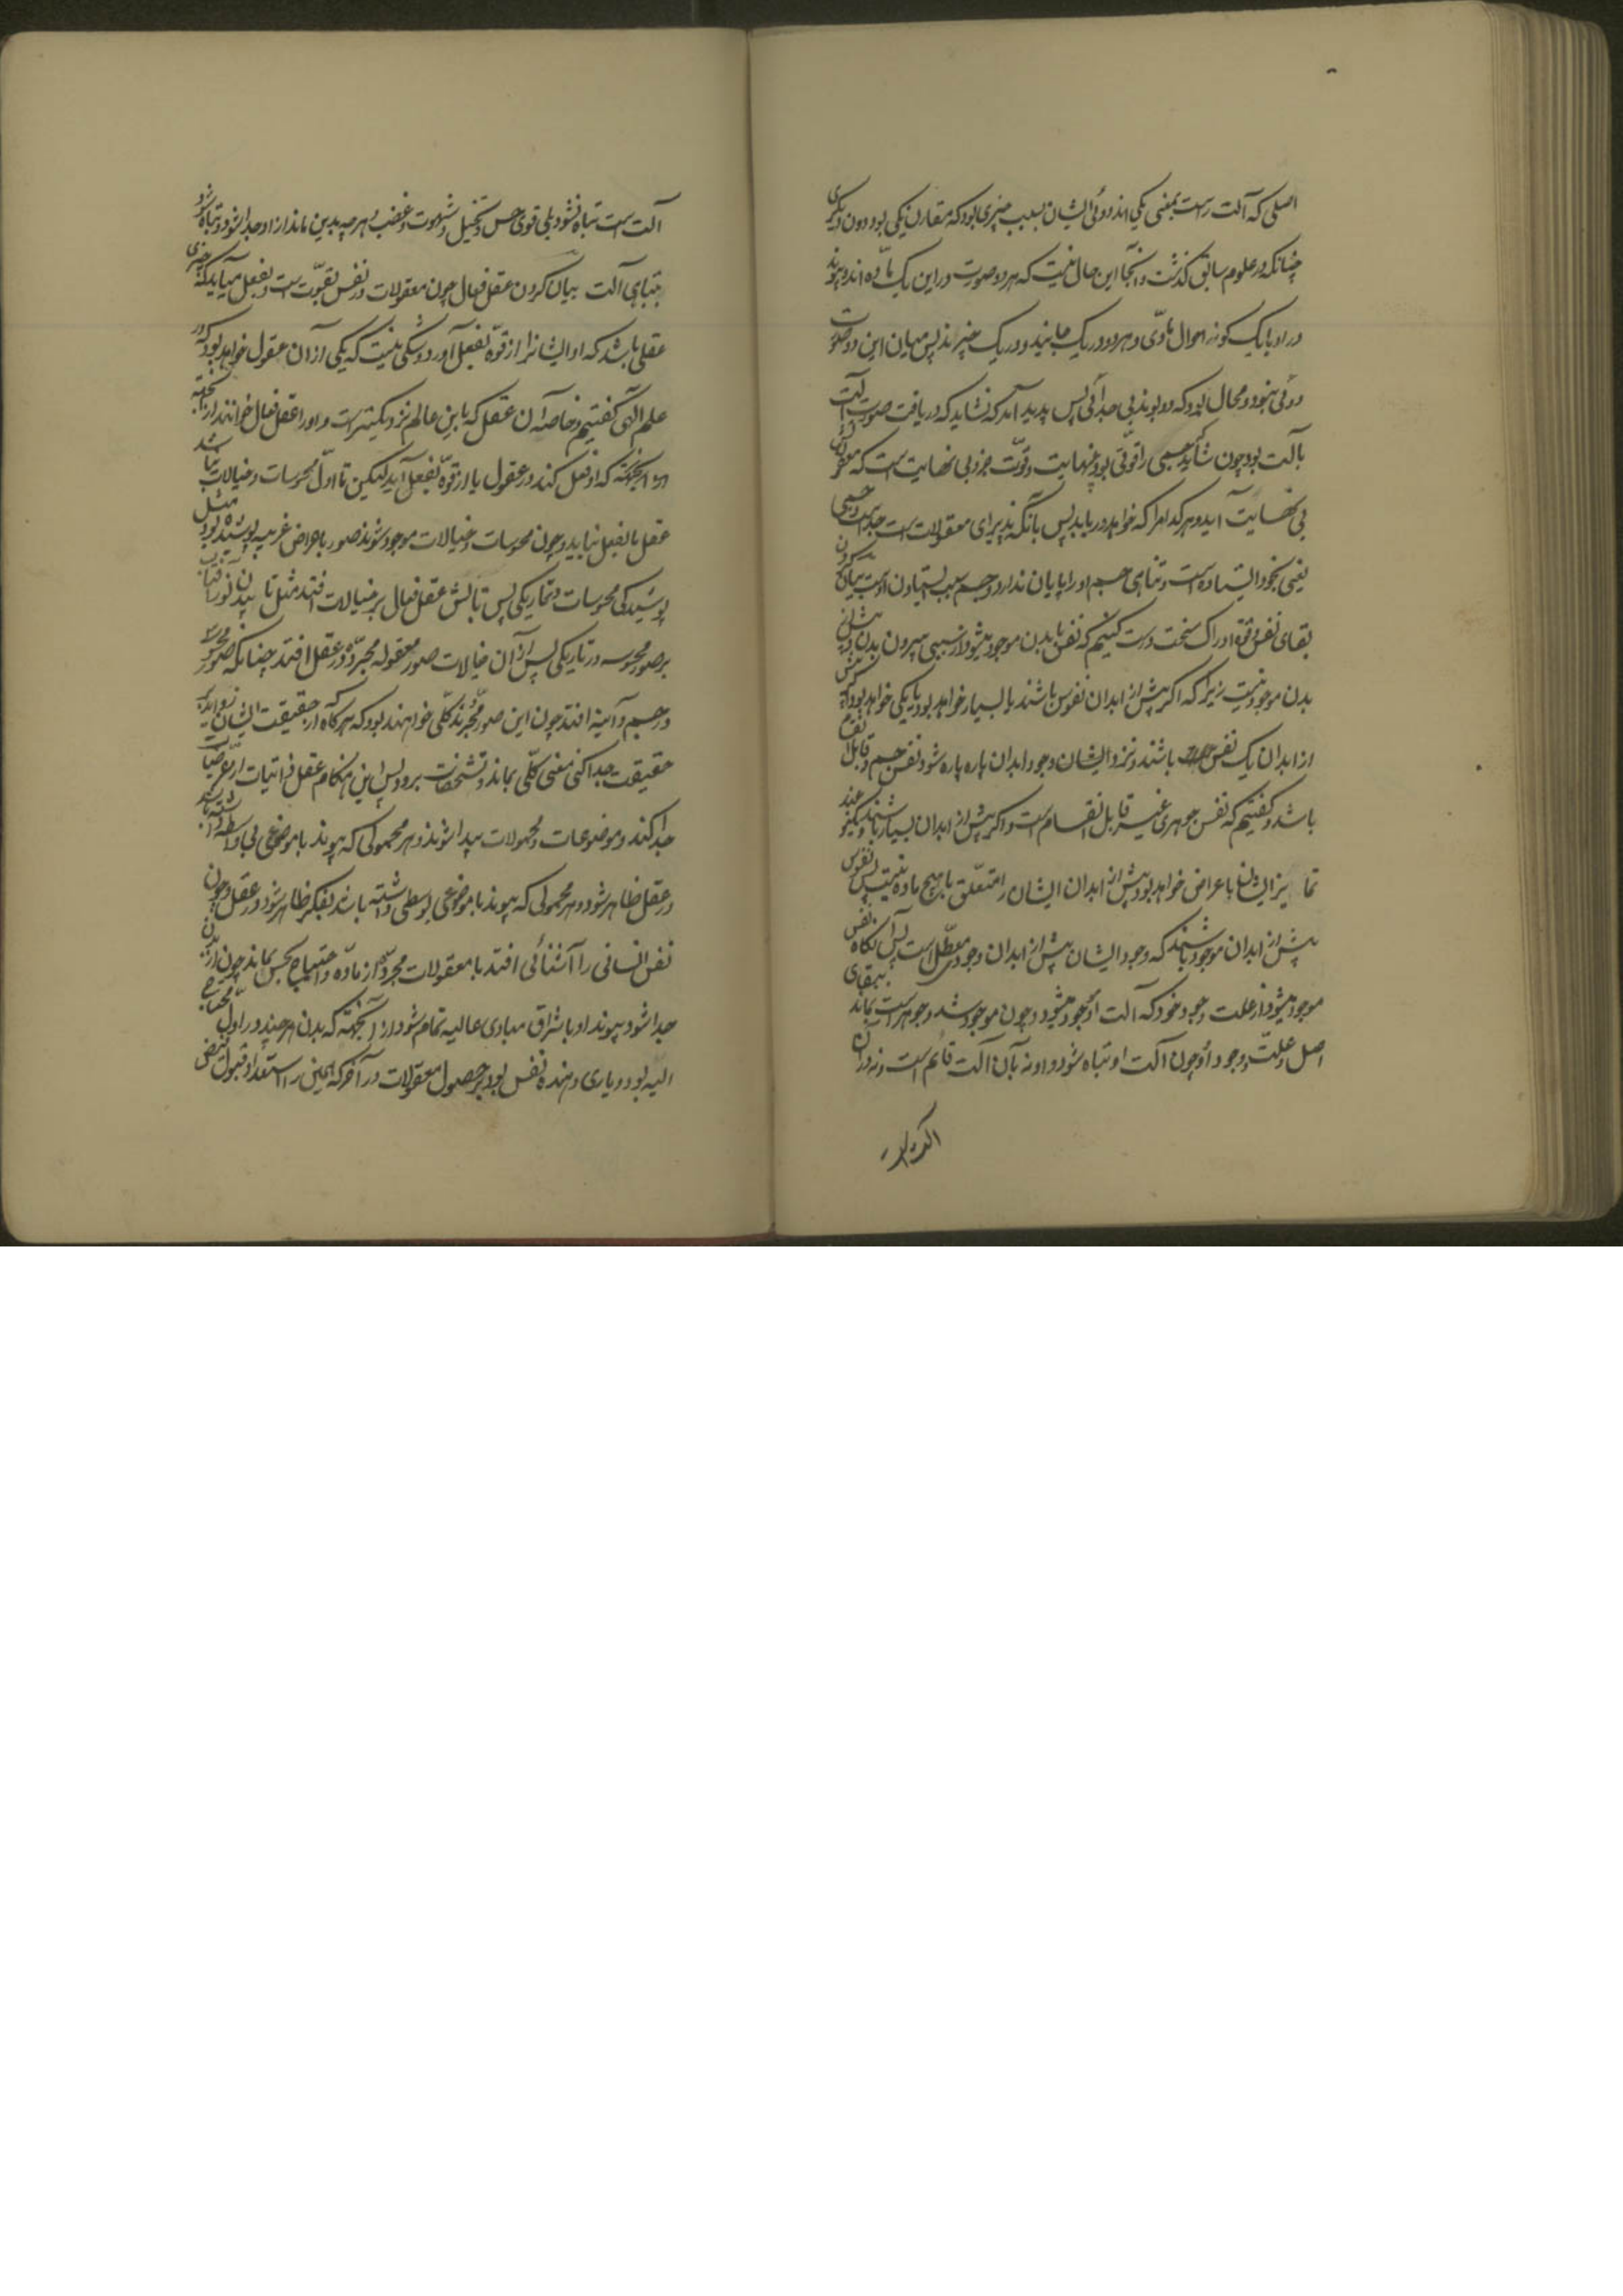 اصلی که آلت راست بمعنی یکی اند دوئی ایشان بسبب چیزی بود که مقارن یکی بود دون دیگری
چنانکه در علوم سابق گذشت و اینجا این حال نیست که هر دو صورت در این یک ماده اند و پیوند
در او با یک گونه احوال مادی و هر دو در یک جایند و در یک چیزند پس میان این دو صورت
دوئی نبود و محال بود که دو بوند بی جدائی پس پدید آمد که نشاید که دریافت صورت آلت
بآلت بود چون شاید که جسمی را قوتی بود بینهایت و قوت خرد بی نهایت است که معقولش
بی نهایت آید و هر کدام را که خواهد دریابد پس بآنکه پذیرای معقولات است جداست و جسمی
یعنی بخود ایستاده است و تباهی جسم او را پایان ندارد و جسم سبب ایستادن او نیست بیان کردن
بقای نفس و قوة ادراک سخت درست کنیم که نفس با بدن موجود میشود از سببی بیرون بدن و پیش از
بدن موجود نیست زیرا که اگر پیش از ابدان نفوس باشند یا بسیار خواهد بود یا یکی خواهد بود اگر پیش
از ابدان یک نفس باشند و نزد ایشان وجود ابدان پاره پاره شود نفس جسم و قابل انقسام
باشد و گفتیم که نفس جوهری غیر قابل انقسام است و اگر پیش از ابدان بسیار باشند
تمایز ایشان باعراض خواهد بود و پیش از ابدان ایشان را تعلق با هیچ ماده نیست پس نفوس
پیش از ابدان موجود نباشند که وجود ایشان پیش از ابدان وجودی معطل است پس آنگاه نفس
موجود میشود از علت وجود خود که آلت او موجود میشود و چون موجود شد و جوهر است بماند ببقای
اصل و علت وجود او چون آلت او تباه شود و او نه بآن آلت قائم است و نه در آن
آلت است تباه نشود بلی قوی حس و تخیل و شهوت و غضب و هر چه بدین ماند از او جدا شود و تباه شود
بتباهی آلت بیان کردن عقل فعال چون معقولات در نفس بقوّت است و بفعل میآید بدانکه چیزی
عقلی باشد که او ایشانرا از قوّه بفعل آورد و شکی نیست که یکی از آن عقول خواهد بود که در
علم الهی گفتیم و خاصه آن عقل که باین عالم نزدیکتر است و او را عقل فعال خوانند از آنجهة
که او فعل کند در عقول ما از قوّه بفعل آید لیکن تا اوّل محسوسات و خیالات نباشد
عقل ما بفعل نیاید و چون محسوسات و خیالات موجود شوند صور با عراض غریبه پوشیده بود مثل
پوشیدگی محسوسات در تاریکی پس تابش عقل فعال بر خیالات افتد مثل تابیدن نور آفتاب
بر صور محسوسه در تاریکی پس از آن خیالات صور معقوله مجرده در عقل افتد چنانکه صور محسوسه
در جسم و آینه افتد چون این صور مجردند کلی خواهند بود که هرگاه از حقیقت ایشان زواید
حقیقت جدا کنی معنی کلّی بماند و تشخصات برود پس این هنگام عقل ذاتیات از عرضیات
جدا کند و موضوعات و محمولات پیدا شوند و هر محمولی که پیوند با موضوعی بی واسطه داشته باشد
در عقل ظاهر شود و هر محمولی که پیوند با موضوعی بوسطی داشته باشد بفکر ظاهر شود در عقل و چون
نفس انسانی را آشنائی افتد با معقولات مجرّده از ماده و احتیاج بحس نماند چون از بدن
جدا شود پیوند او باشراق مبادی عالیه تمام شود از آنجهة که بدن هر چند در اول محتاج
الیه بود و یاری دهنده نفس بود بر حصول معقولات در آخر که همین را استعداد قبول فیض